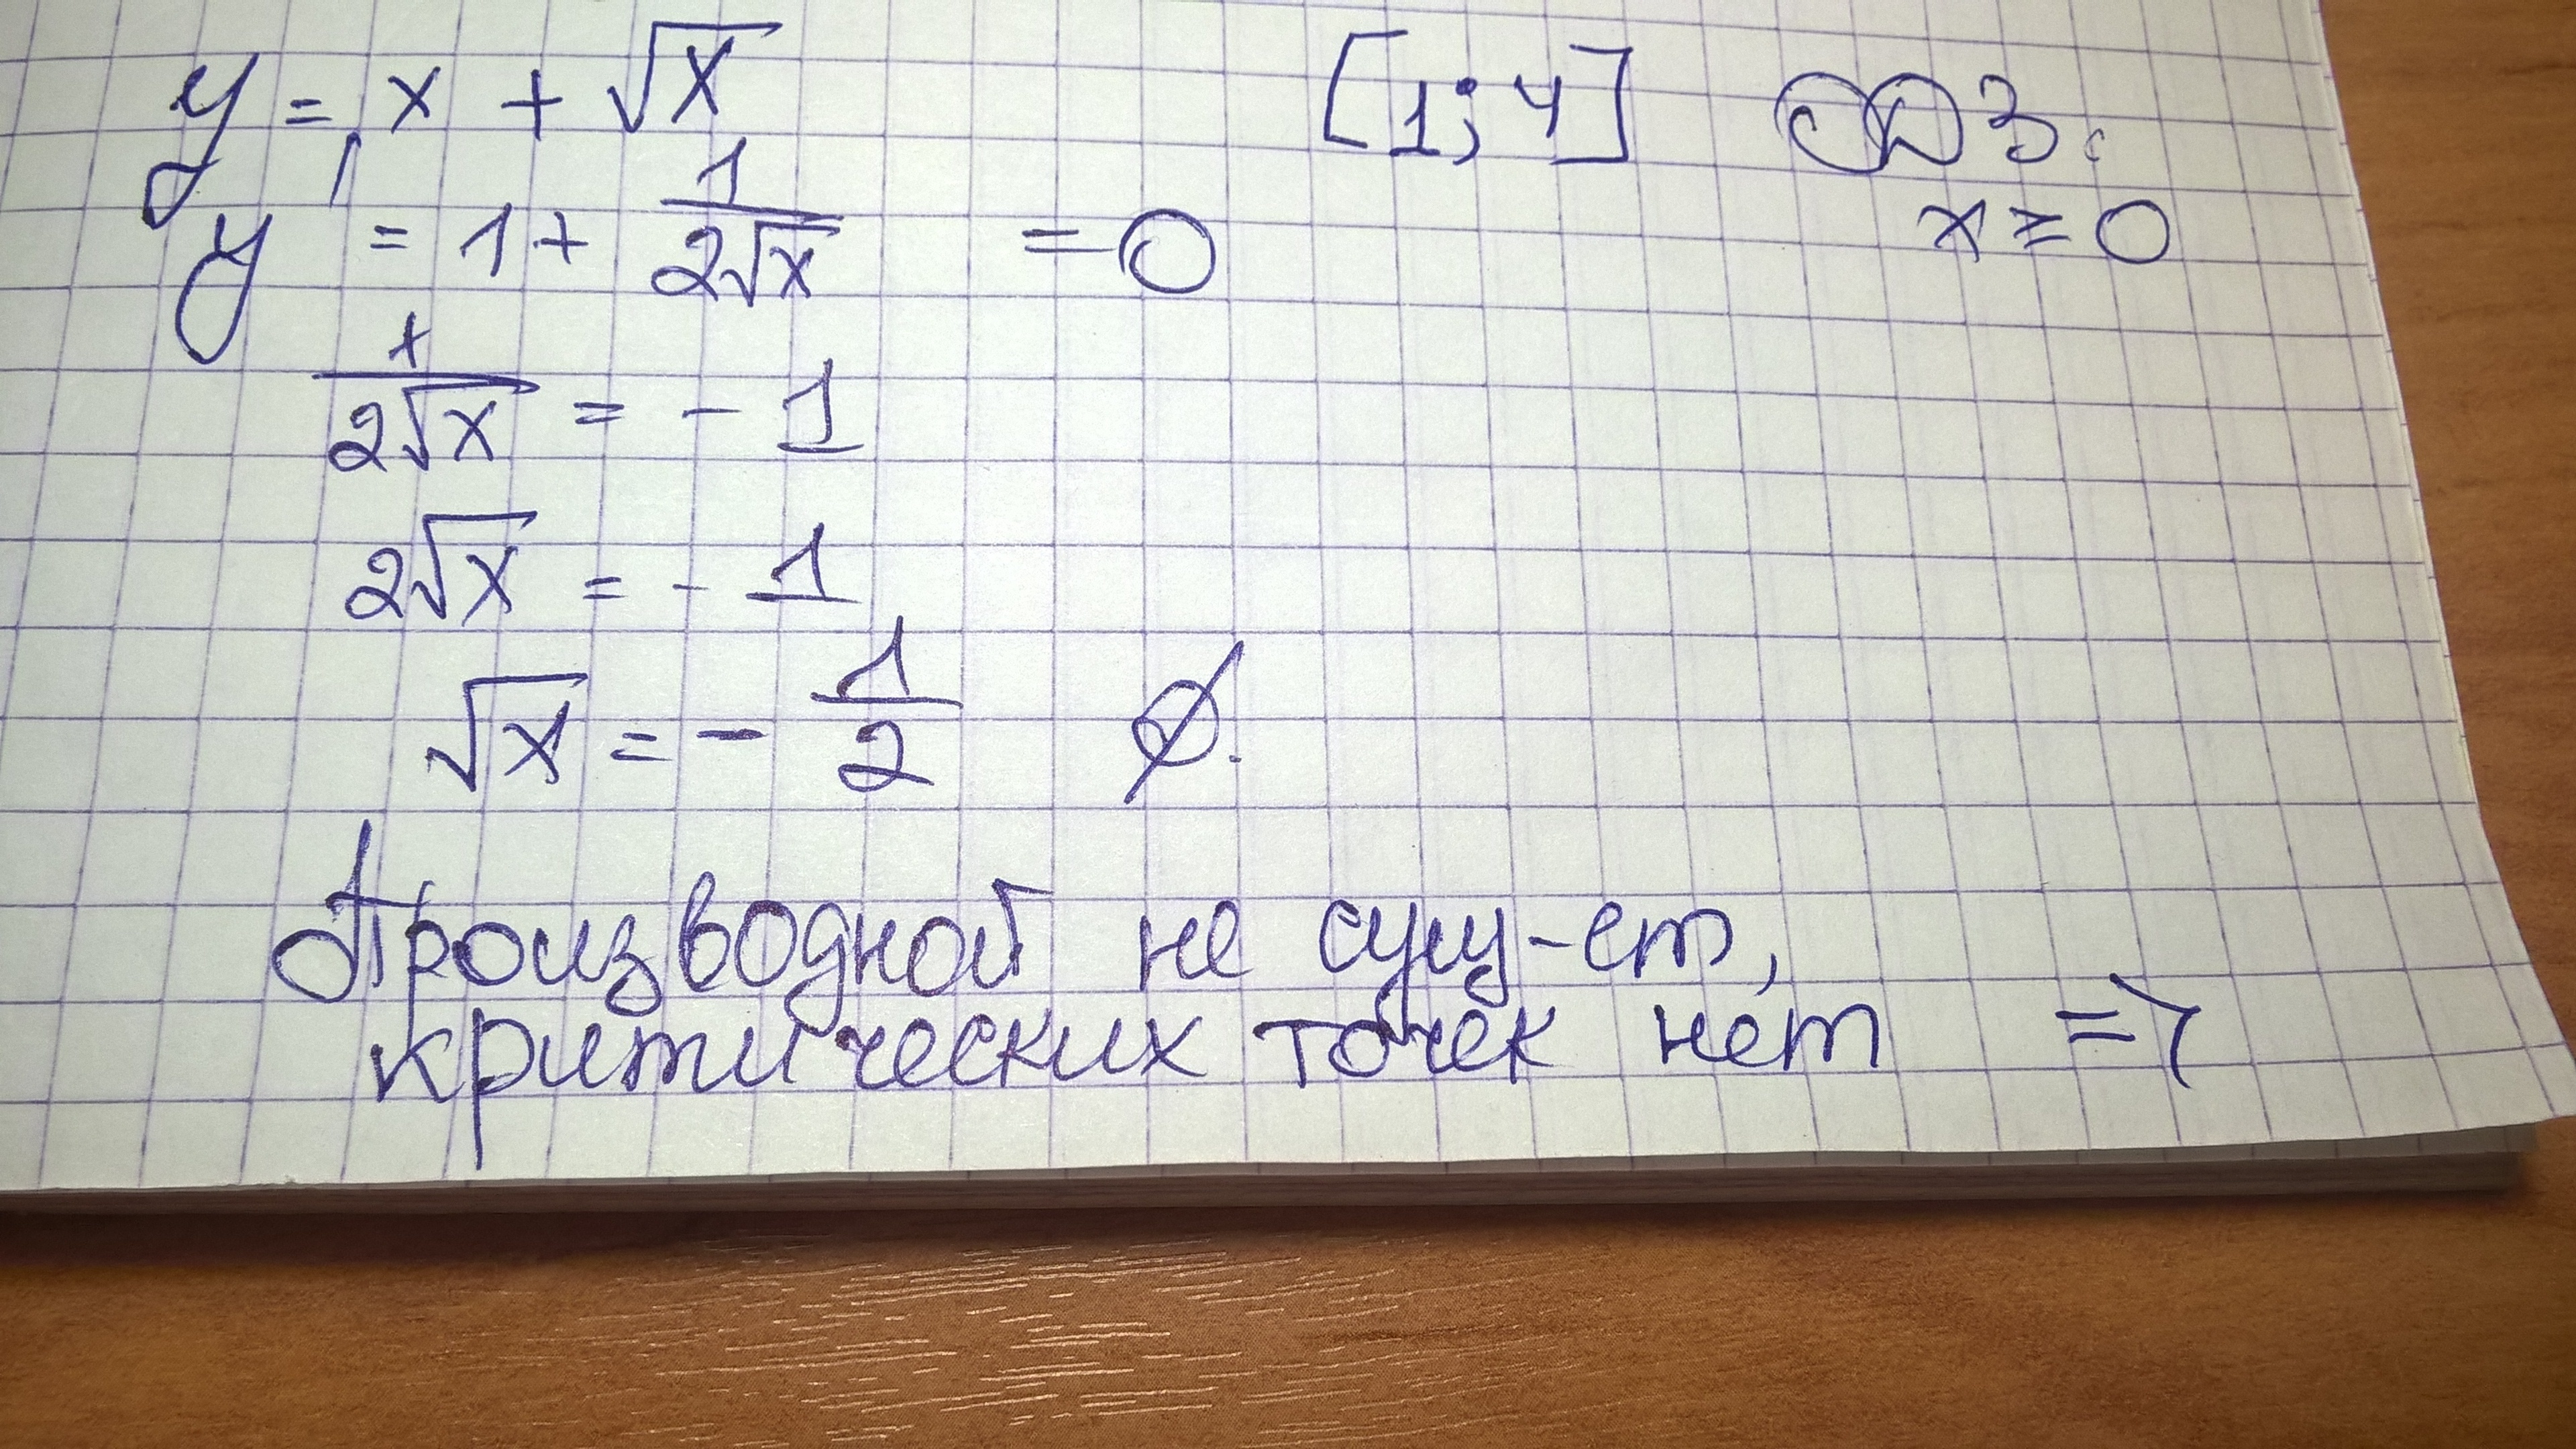 y = x + √x [1; 4] ОДЗ:
x ≥ 0
y' = 1 + 1/(2√x) = 0
1/(2√x) = - 1
2√x = - 1
√x = - 1/2 ∅.
Производной не сущ-ет,
критических точек нет =>